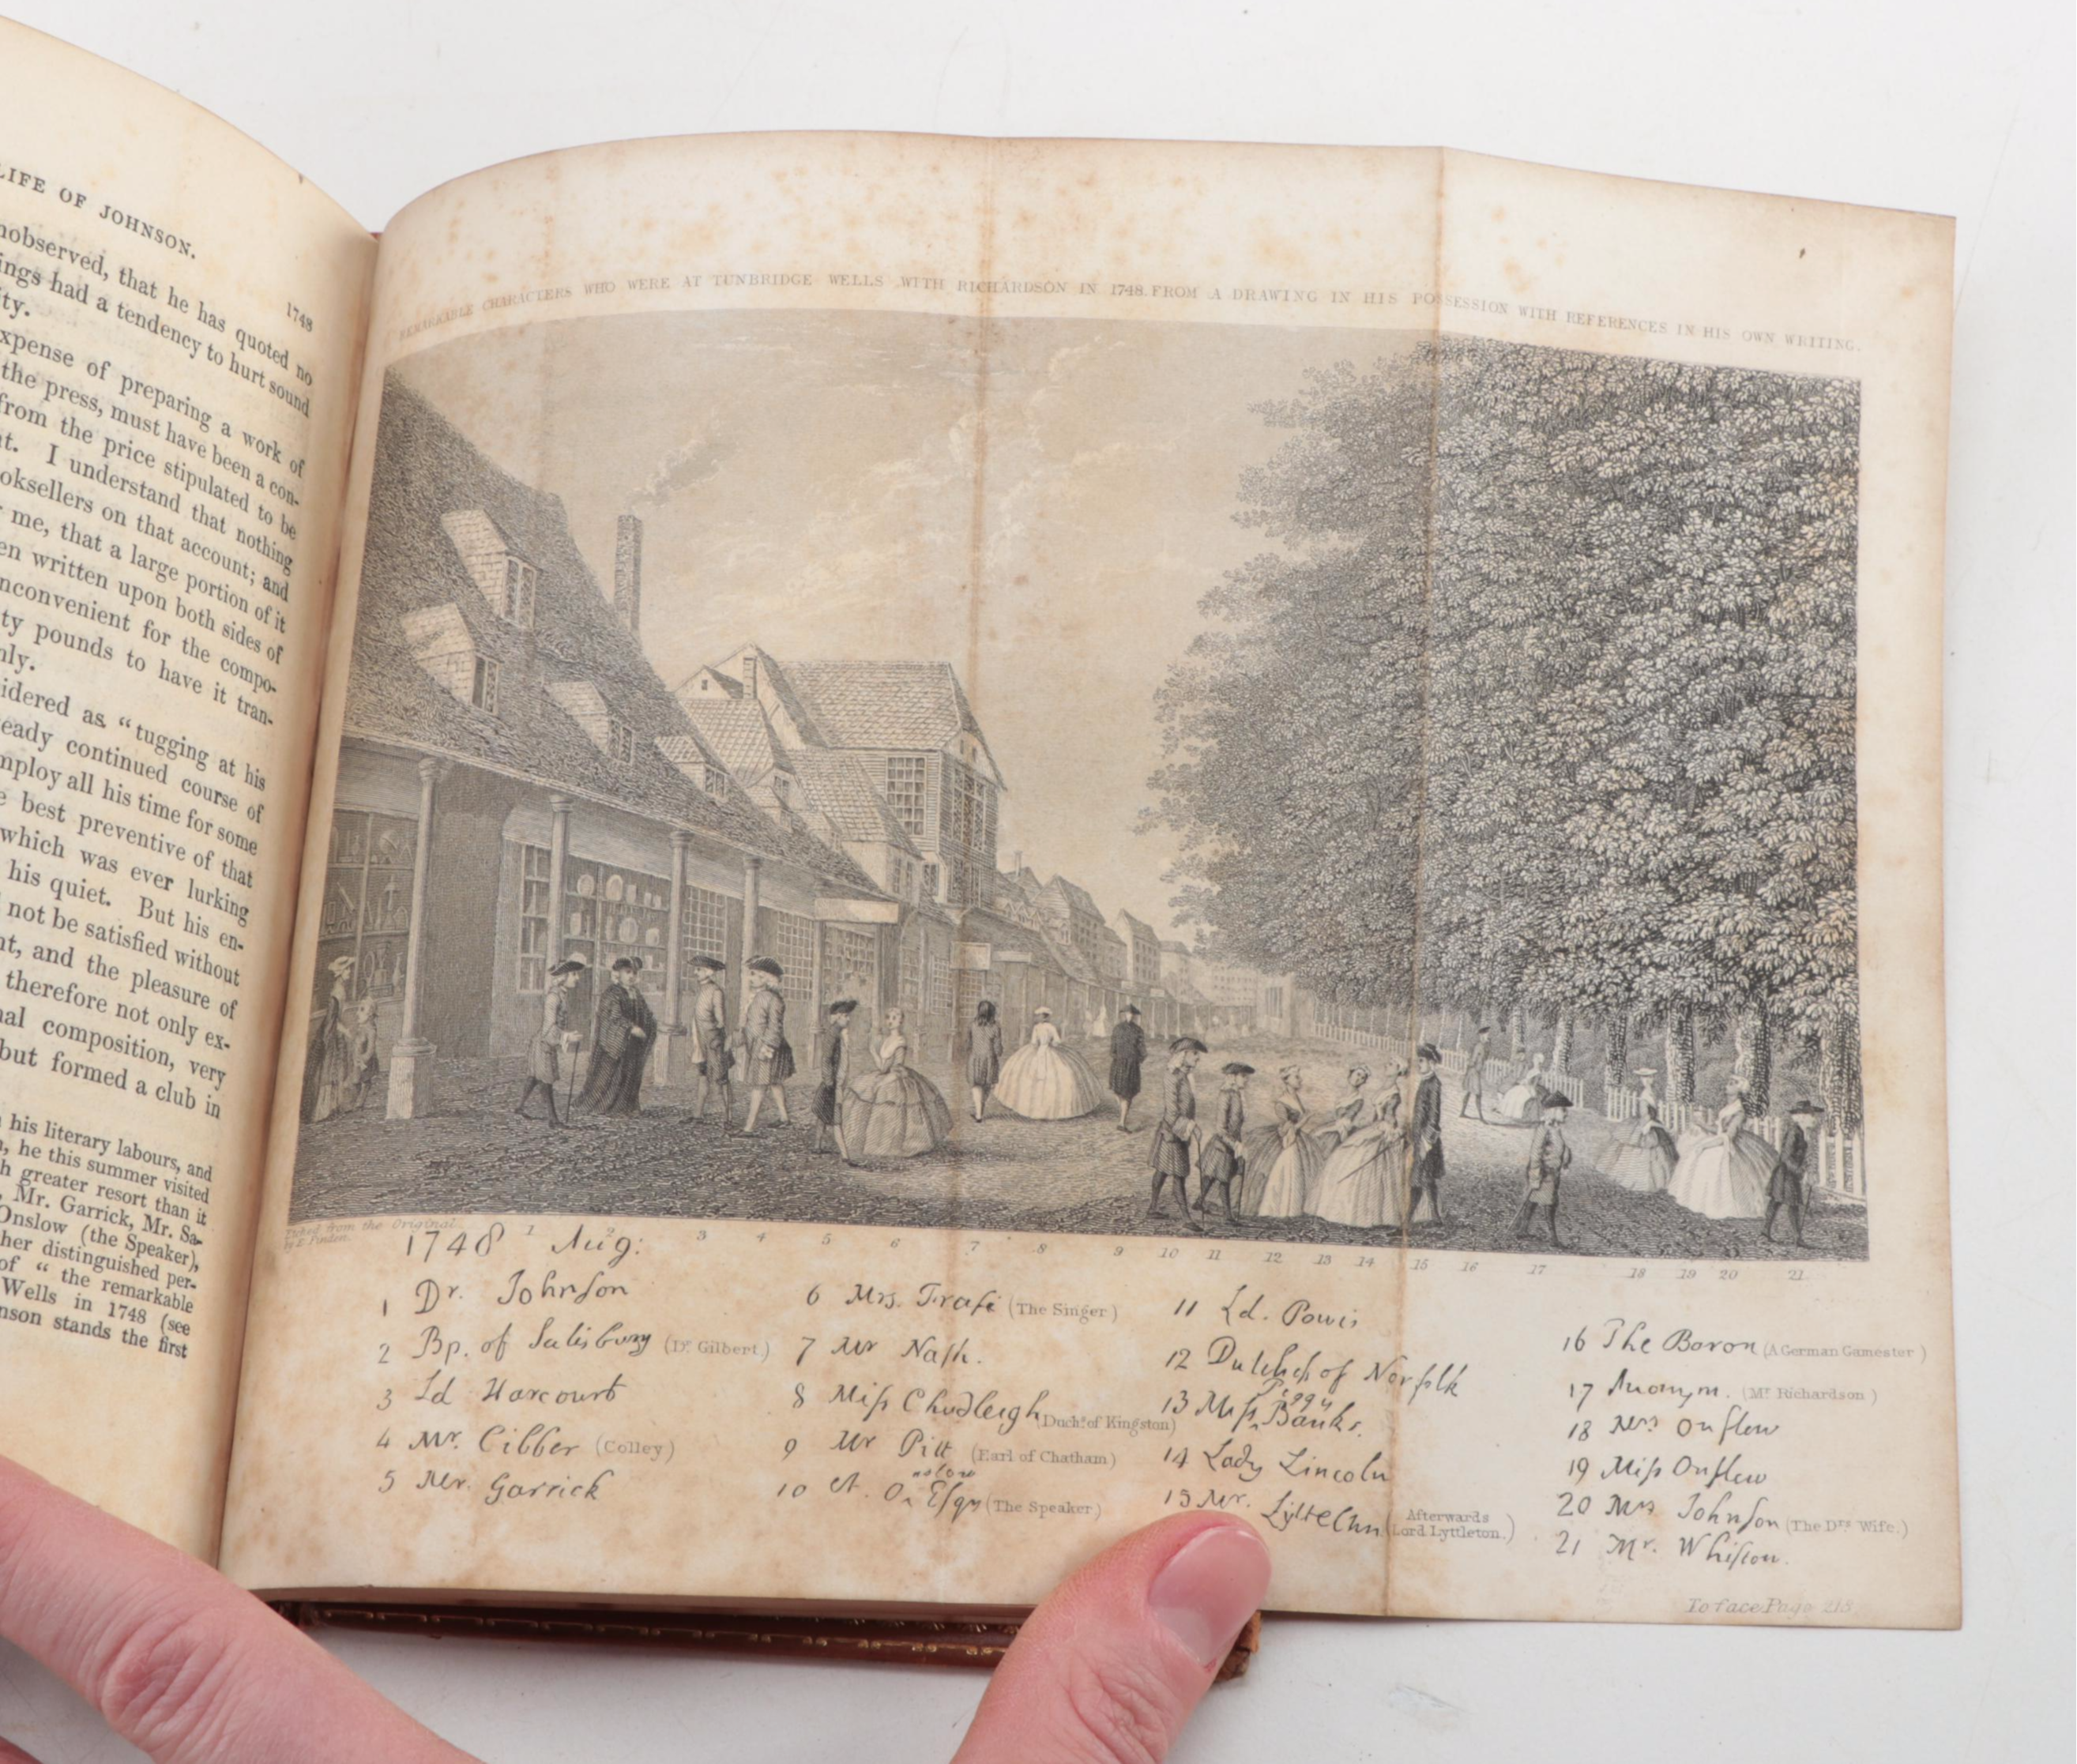 LIFE OF JOHNSON.
1748
nobserved, that he has quoted no
ings had a tendency to hurt sound
ty.
xpense of preparing a work of
the press, must have been a con-
from the price stipulated to be
t. I understand that nothing
ooksellers on that account; and
me, that a large portion of it
en written upon both sides of
nconvenient for the compo-
ty pounds to have it tran-
nly.
idered as “tugging at his
eady continued course of
mploy all his time for some
e best preventive of that
which was ever lurking
his quiet. But his en-
not be satisfied without
nt, and the pleasure of
therefore not only ex-
nal composition, very
but formed a club in
his literary labours, and
, he this summer visited
h greater resort than it
, Mr. Garrick, Mr. Sa-
Onslow (the Speaker),
her distinguished per-
of “ the remarkable
Wells in 1748 (see
nson stands the first
REMARKABLE CHARACTERS WHO WERE AT TUNBRIDGE WELLS WITH RICHARDSON IN 1748. FROM A DRAWING IN HIS POSSESSION WITH REFERENCES IN HIS OWN WRITING.
Etched from the Original
by E. Finden.
1 2 3 4 5 6 7 8 9 10 11 12 13 14 15 16 17 18 19 20 21
1748 Aug:
1 Dr. Johnson
2 Bp. of Salisbury (Dr. Gilbert.)
3 Ld Harcourt
4 Mr. Cibber (Colley)
5 Mr. Garrick
6 Mrs. Frasi (The Singer)
7 Mr Nash.
8 Miss Chudleigh (Duchs. of Kingston)
9 Mr Pitt (Earl of Chatham)
10 A. Onslow Esqr (The Speaker)
11 Ld. Powis
12 Dutchss of Norfolk
13 Miss Peggy Banks.
14 Lady Lincoln
15 Mr. Lyttelton (Afterwards Lord Lyttleton.)
16 The Baron (A German Gamester)
17 Anonym. (Mr. Richardson)
18 Mrs Onslow
19 Miss Onslow
20 Mrs Johnson (The Drs. Wife.)
21 Mr. Whiston.
To face Page 218